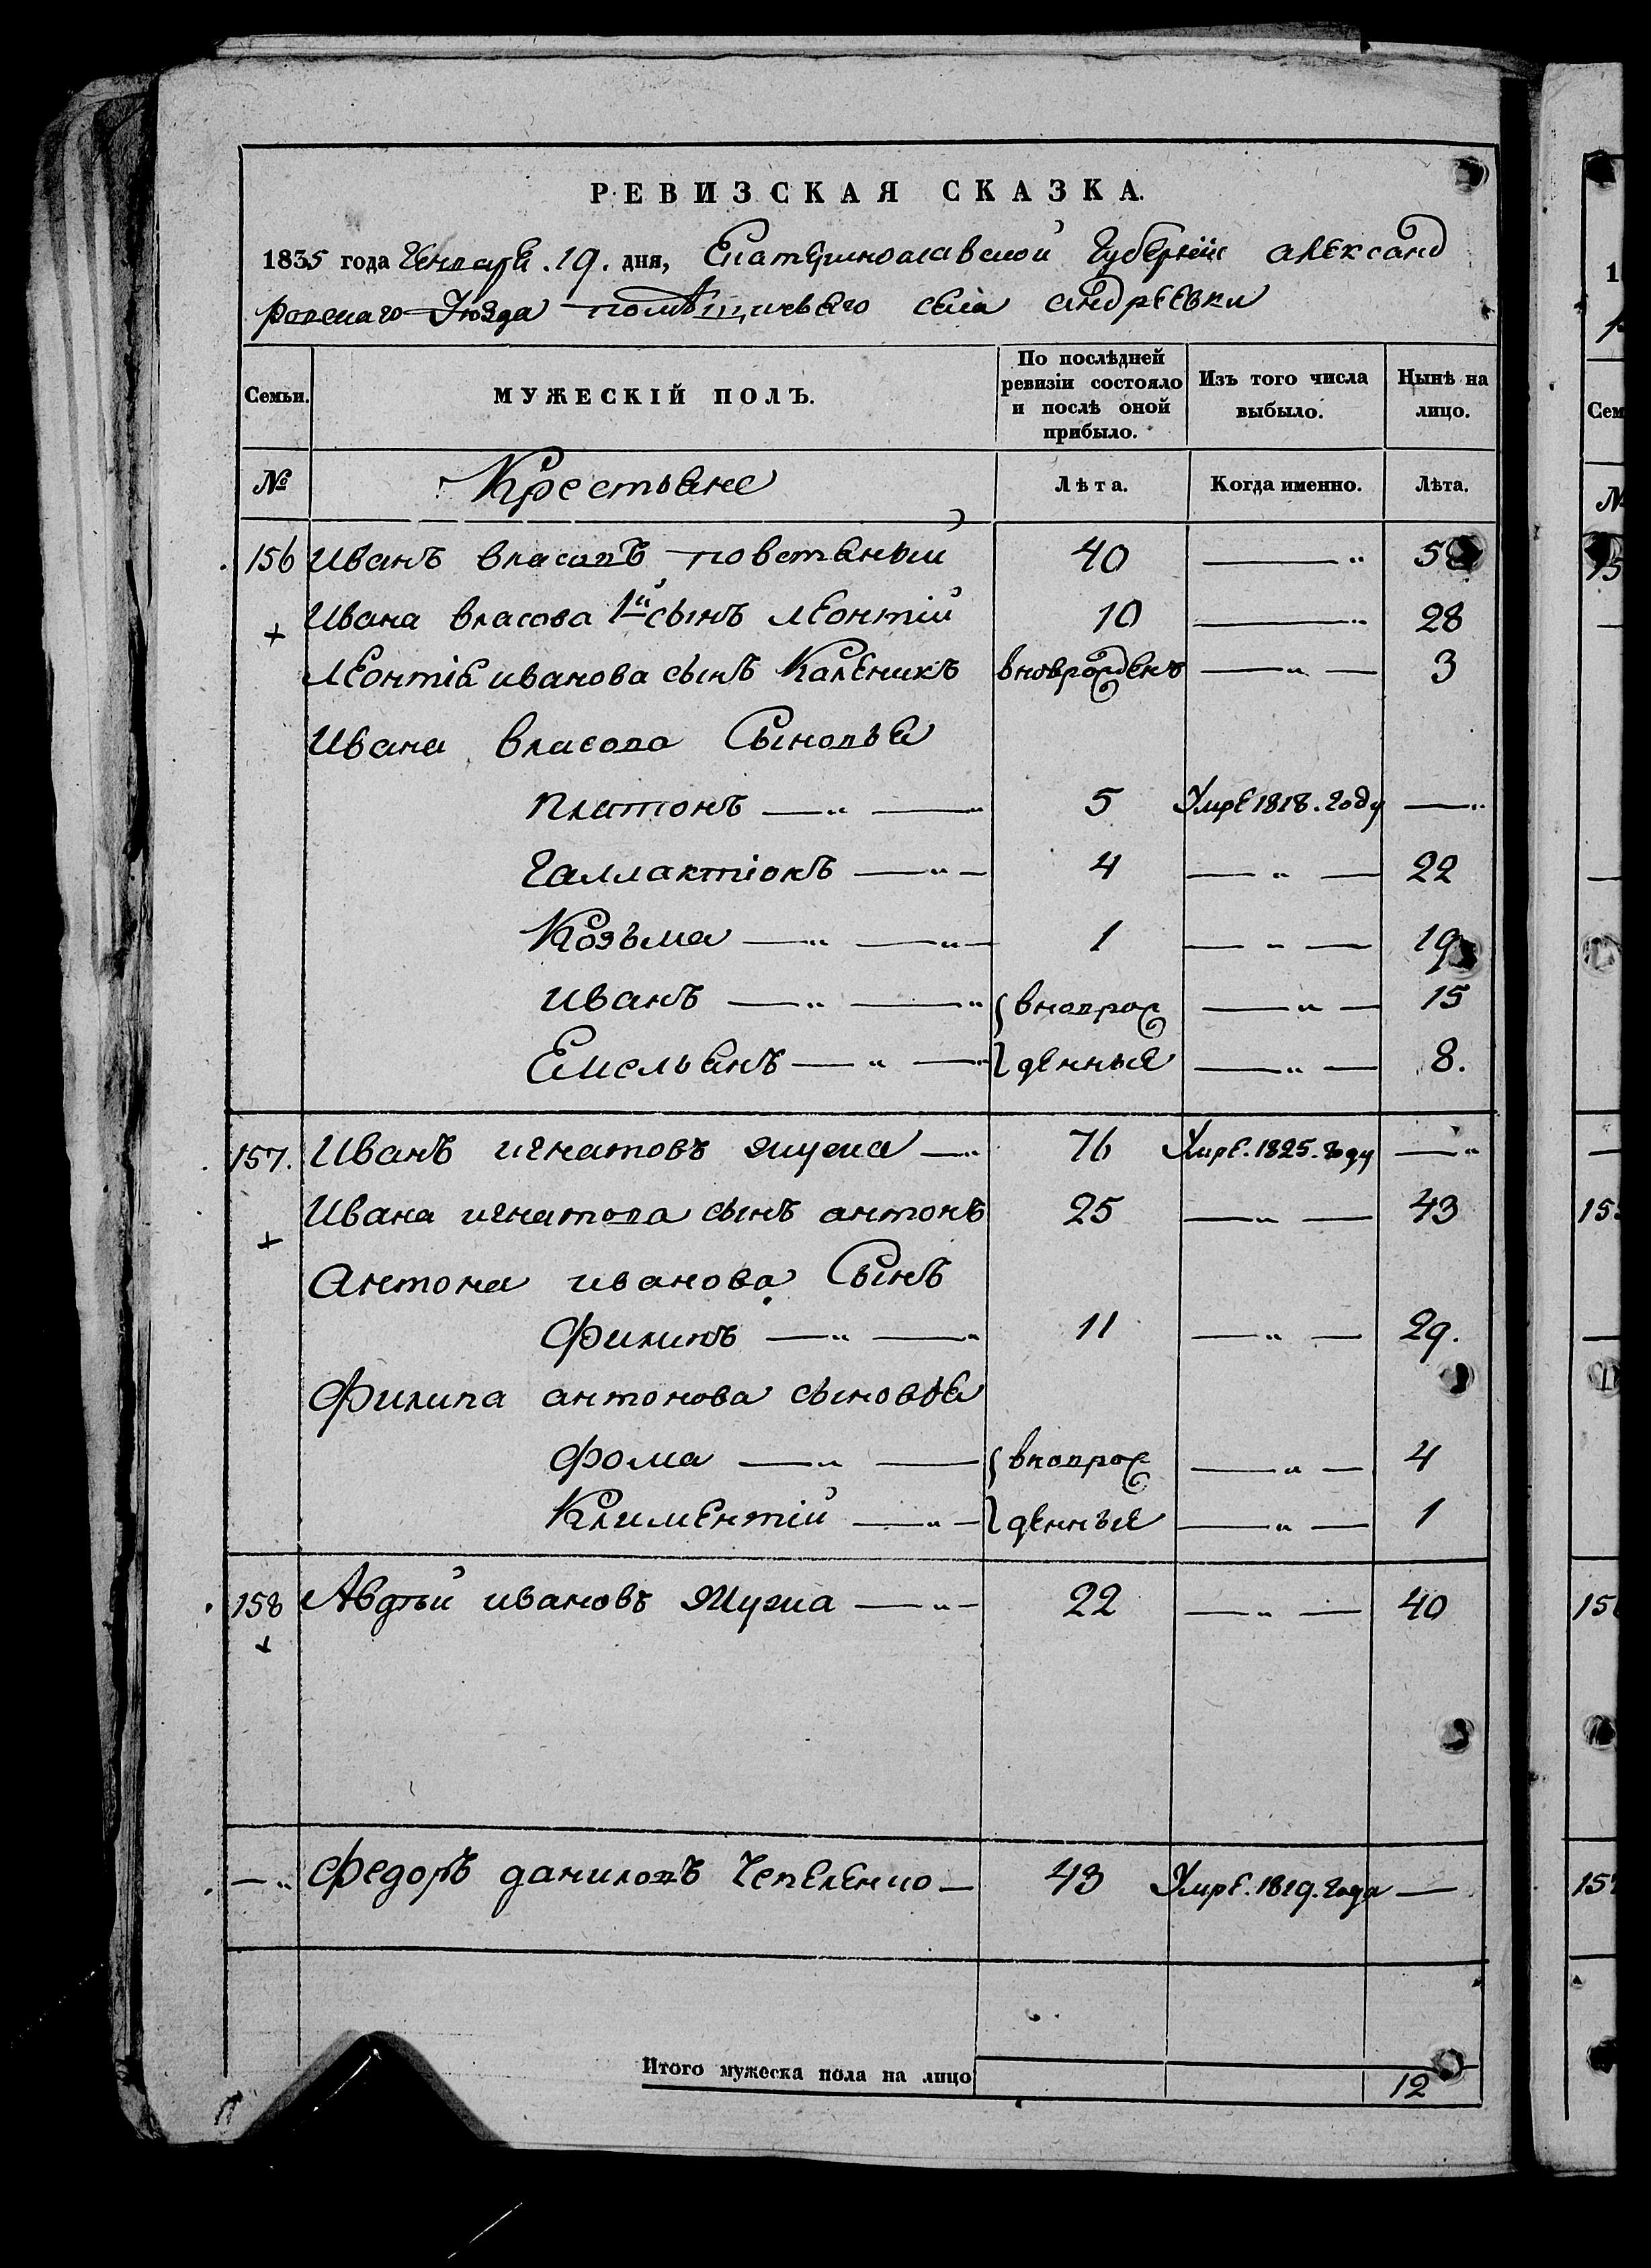 РЕВИЗСКАЯ СКАЗКА.
1835 года Генваря. 19. дня, Екатеринославской Губернiи Александ
ровскаго Уѣзда помѣщичьяго села Андреевки
Семьи. МУЖЕСКІЙ ПОЛЪ. По послѣдней ревизіи состояло и послѣ оной прибыло. Изъ того числа выбыло. Нынѣ на лицо.
№ Крестьяне Лѣта. Когда именно. Лѣта.
156 Иванъ Власовъ 40 — „ 58
Ивана Власова 1й сынъ Леонтій 10 — „ 28
Леонтія Иванова сынъ Каленикъ вноврожденъ — „ — 3
Ивана Власова Сыновья
Платонъ — „ — „ 5 Умре 1818. году — „
Галлактіонъ — „ — 4 — „ — 22
Козьма — „ — „ — 1 — „ — 19
Иванъ — „ — „ вноврож — „ — 15
Емельянъ — „ — „ денные — „ — 8.
157. Иванъ Игнатовъ — „ 76 Умре. 1825. году — „
Ивана Игнатова сынъ Антонъ 25 — „ — 43
Антона Иванова Сынъ
Филипъ — „ — „ 11 — „ — 29.
Филипа Антонова сыновья
Фома — „ — вноврож — „ — 4
Климентій — „ — денные — „ — 1
158 Авдѣй Ивановъ — „ — 22 — „ — 40
— „ Федоръ Даниловъ Чепеленко — 43 Умре. 1819. года —
Итого мужеска пола на лицо 12